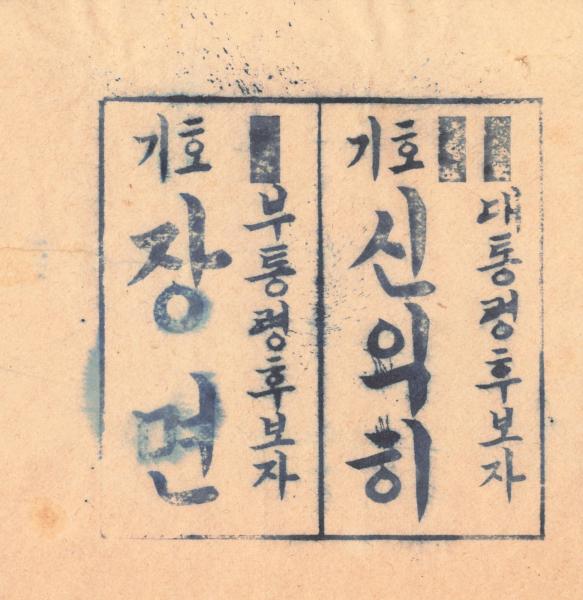 기호 II
대통령후보자
신익희
기호 I
부통령후보자
장면